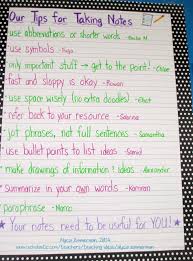 Our Tips for Taking Notes
use abbreviations or shorter words -
use symbols -
only important stuff → get to the point! - Chloe
fast and sloppy is okay - Rowan
use space wisely (no extra doodles) - Elliot
refer back to your resource - Sabrina
jot phrases, not full sentences - Samantha
use bullet points to list ideas - Sumaid
make drawings of information & ideas - Alexander
Summarize in your own words - Kamran
paraphrase -
★ Your notes need to be useful for YOU! ★
Alycia Zimmerman, 2014